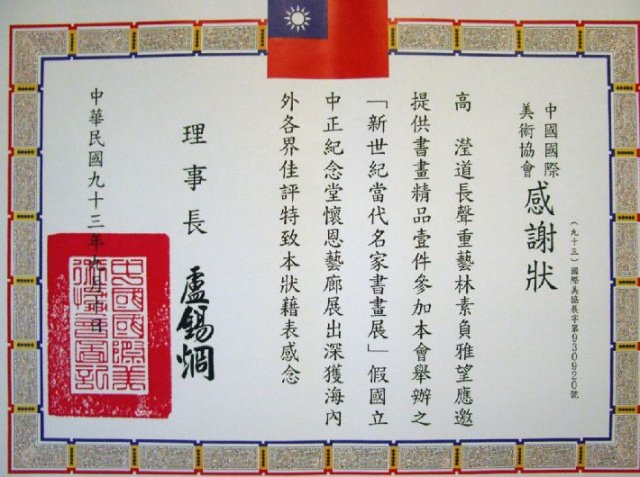 中國國際
美術協會
感謝狀
（九十三）國際美協展字第930920號
高 瀅道長聲重藝林素負雅望應邀
提供書畫精品壹件參加本會舉辦之
「新世紀當代名家書畫展」假國立
中正紀念堂懷恩藝廊展出深獲海內
外各界佳評特致本狀藉表感念
理事長 盧錫炯
中華民國九十三年 月 日
中國國際美
術協會圖記